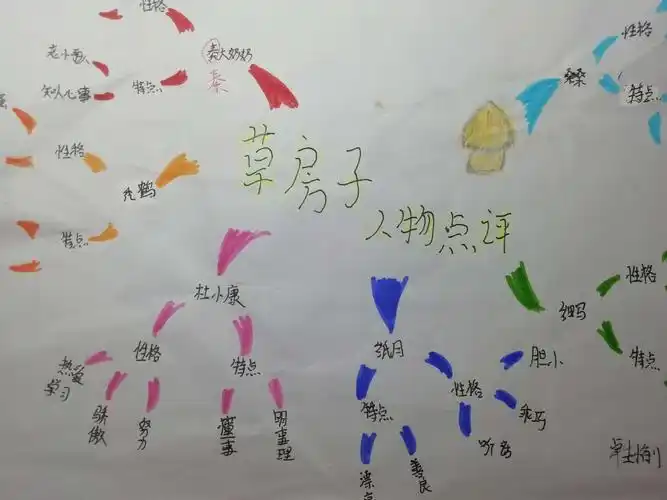 草房子
人物点评
秦大奶奶
秦
性格
特点
老小孩
知人心事
秃鹤
性格
特点
杜小康
性格
热爱学习
骄傲
努力
特点
懂事
明事理
纸月
特点
漂亮
善良
性格
胆小
乖巧
细马
性格
特点
桑桑
性格
特点